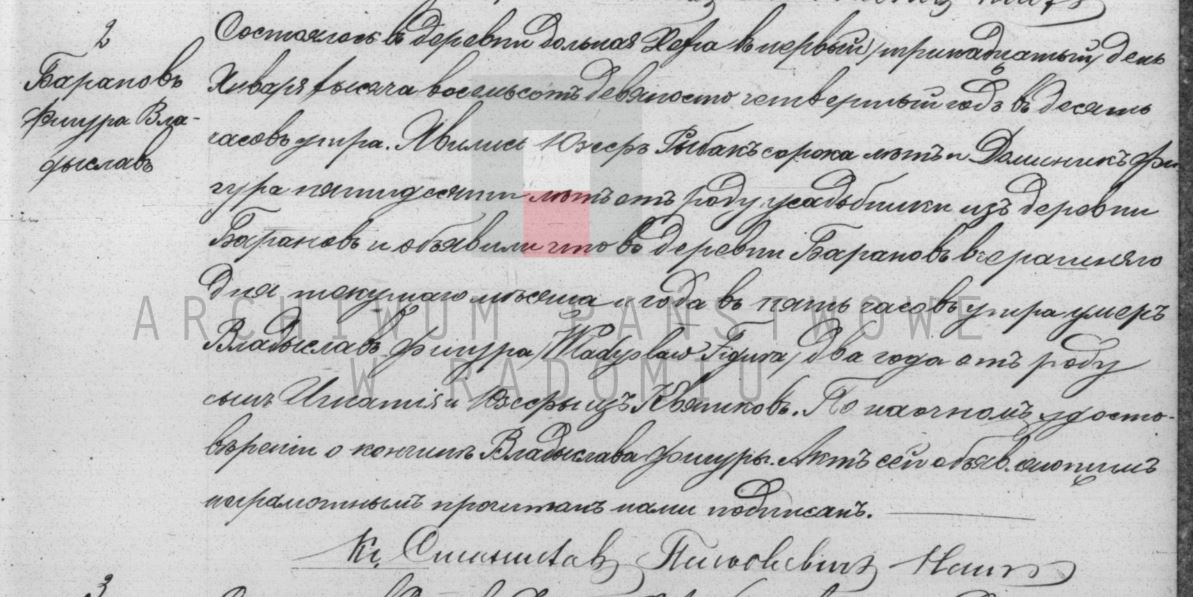 2
Барановъ
Фигура Вла-
дыславъ
Состоялось въ деревни Вольная в первый /тринадцатый/ день
Января тысяча восемьсотъ девяносто четвертый годъ въ десять
часовъ утра. Явились Юзефъ Рыбакъ сорока лѣтъ и Доминикъ Фи-
гура пятидесяти лѣтъ отъ роду усадьбники изъ деревни
Барановъ и объявили что въ деревни Барановъ вчерашняго
дня текущаго мѣсяца и года въ пять часовъ утра умеръ
Владыславъ Фигура /Władysław Figura/ два года отъ роду
сынъ Игнатія и Юзефы изъ По наочномъ удосто-
вѣреніи о кончинѣ Владыслава Фигуры. Актъ сей объявляющимъ
неграмотнымъ прочитанъ нами подписанъ.
Кс. Станиславъ
3
ARCHIWUM PAŃSTWOWE
W RADOMIU